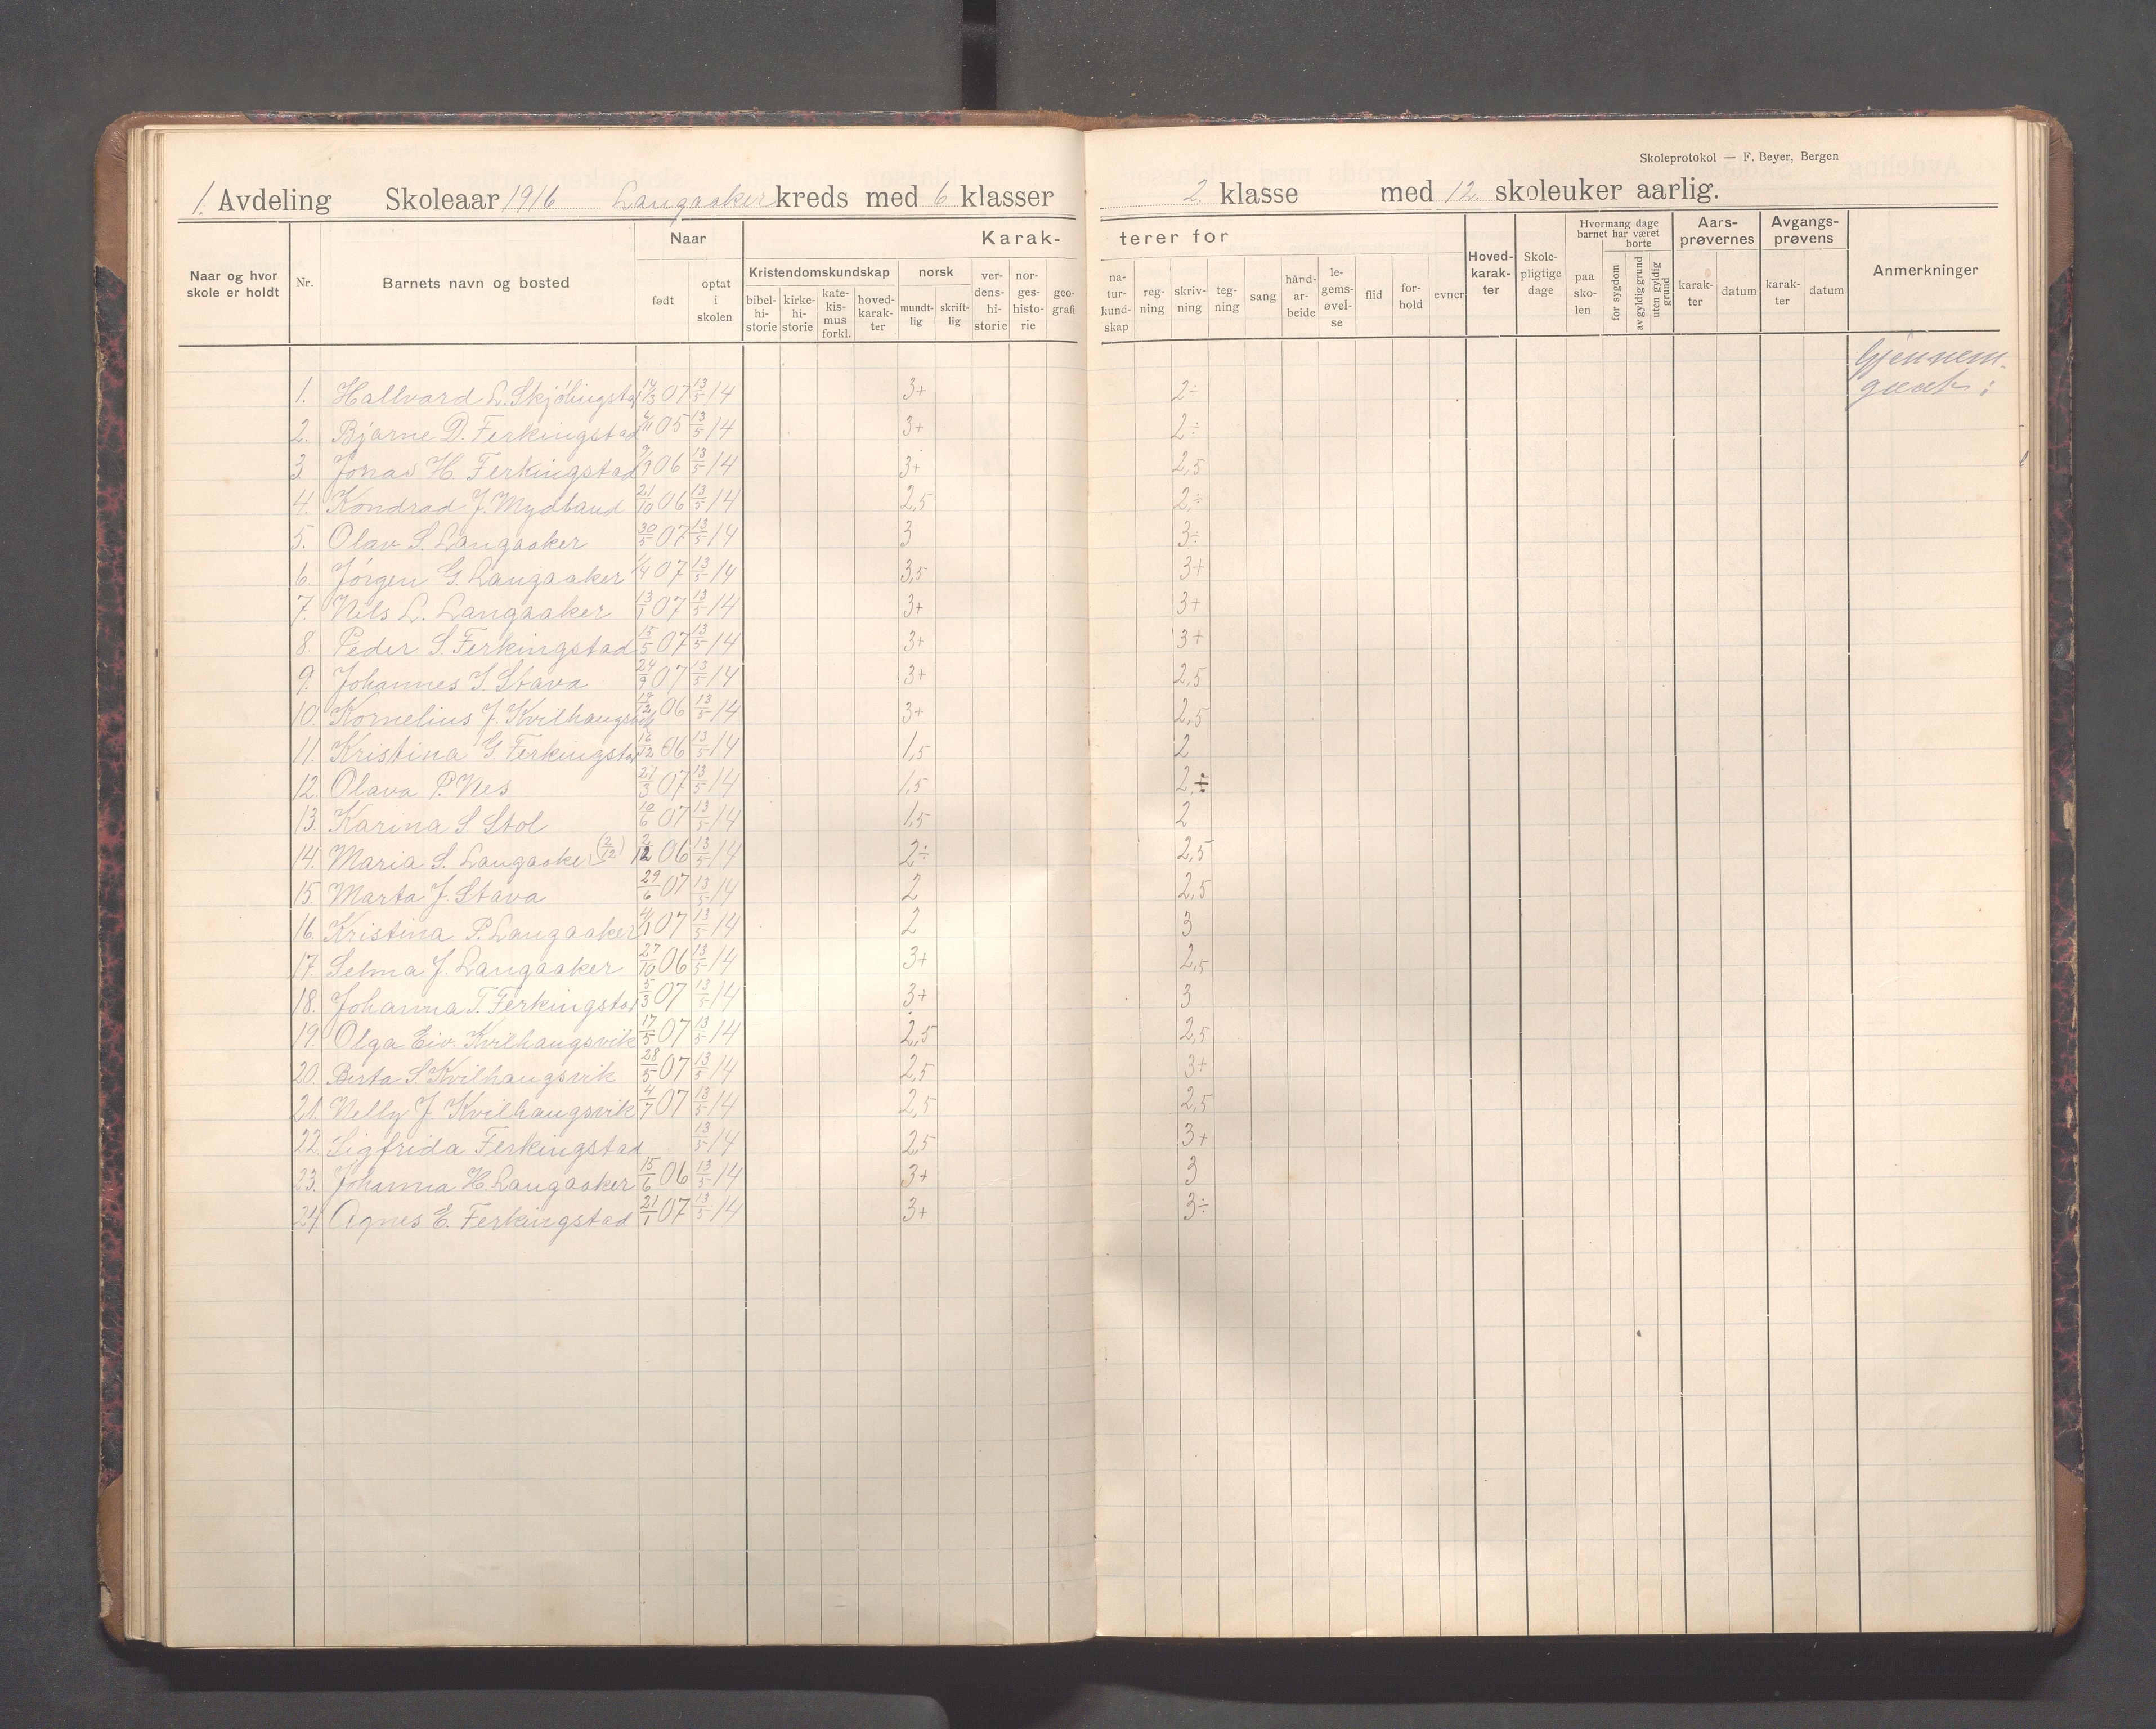 Skoleprotokol — F. Beyer, Bergen
1. Avdeling Skoleaar 1916 Langaaker kreds med 6 klasser 2. klasse med 12 skoleuker aarlig.
Naar og hvor skole er holdt Nr. Barnets navn og bosted Naar født optat i skolen Karakterer for Kristendomskundskap bibelhistorie kirkehistorie katekismus forkl. hovedkarakter norsk mundtlig skriftlig verdenshistorie norgeshistorie geografi naturkundskap regning skrivning tegning sang håndarbeide legemsøvelse flid forhold evner Hovedkarakter Skolepligtige dage Hvormang dage barnet har været paa skolen borte for sygdom av gyldig grund uten gyldig grund Aarsprøvernes karakter datum Avgangsprøvens karakter datum Anmerkninger
Gjennem-
gaat:
1. Hallvard L. Skjölingstad 14/3 07 13/5 14 3+ 2÷
2. Bjarne D. Ferkingstad 6/11 05 13/5 14 3+ 2÷
3 Jonas H. Ferkingstad 06 13/5 14 3+ 2,5
4. Kondrad J. Mydland 21/10 06 13/5 14 2,5 2÷
5. Olav S. Langaaker 30/5 07 13/5 14 3 3÷
6. Jörgen G. Langaaker 1/4 07 13/5 14 3,5 3+
7. Nils L. Langaaker 13/1 07 13/5 14 3+ 3+
8. Peder S. Ferkingstad 15/5 07 13/5 14 3+ 3+
9. Johannes S. Stava 24/9 07 13/5 14 3+ 2,5
10. Kornelius J. Kvilhaugsvik 06 13/5 14 3+ 2,5
11. Kristina G. Ferkingstad 16/12 06 13/5 14 1,5 2
12. Olava P. Nes 21/3 07 13/5 14 1,5 2÷
13. Karina S. Stol 10/6 07 13/5 14 1,5 2
14. Maria S. Langaaker (2/12) 2/12 06 13/5 14 2÷ 2,5
15. Marta J. Stava 29/6 07 13/5 14 2 2,5
16. Kristina P. Langaaker 4/1 07 13/5 14 2 3
17. Selma J. Langaaker 27/10 06 13/5 14 3+ 2,5
18. Johanna T. Ferkingstad 5/3 07 13/5 14 3+ 3
19. Olga Eiv. Kvilhaugsvik 17/5 07 13/5 14 2,5 2,5
20. Berta S. Kvilhaugsvik 28/5 07 13/5 14 2,5 3+
21. Nelly J. Kvilhaugsvik 4/7 07 13/5 14 2,5 2,5
22. Sigfrida Ferkingstad 13/5 14 2,5 3+
23. Johanna H. Langaaker 15/6 06 13/5 14 3+ 3
24. Agnes E. Ferkingstad 21/1 07 13/5 14 3+ 3÷